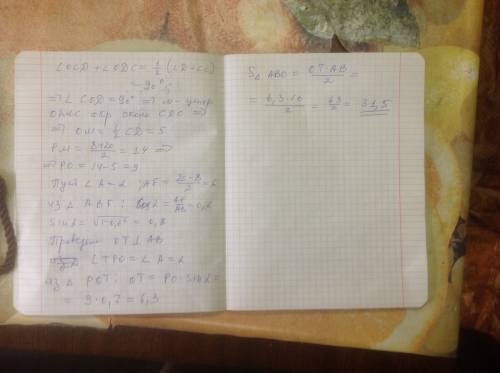 ∠OCD + ∠ODC = 1/2 (∠D + ∠C)
= 90°;
⇒ ∠ COD = 90° ⇒ M - центр
опис окр около CDO ⇒
⇒ OM = 1/2 CD = 5
PM = (8+20)/2 = 14 ⇒
⇒ PO = 14 - 5 = 9
Пусть ∠ A = α ; AF = (20 - 8)/2 = 6
из Δ ABF : cos α = AF/AB = 0,6
sin α = √1-0,6² = 0,8
Проведем OT ⊥ AB
∠ TPO = ∠ A = α
из Δ POT : OT = PO · sin α =
= 9 · 0,7 = 6,3
S Δ ABO = OT · AB / 2 =
= 6,3 · 10 / 2 = 63/2 = 31,5